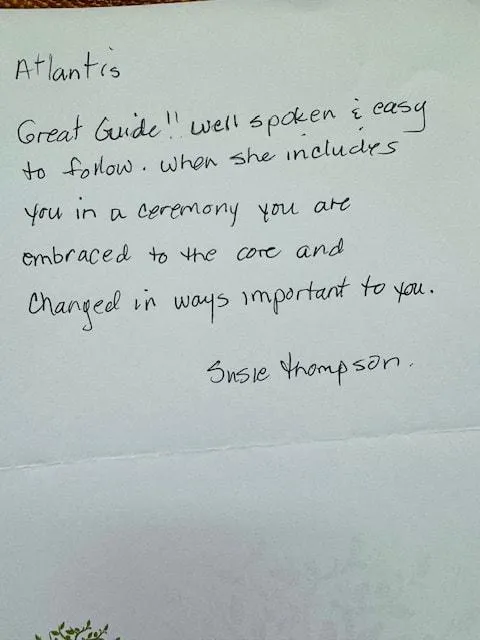 Atlantis
Great Guide!! well spoken & easy
to follow. When she includes
you in a ceremony you are
embraced to the core and
Changed in ways important to you.
Susie Thompson.